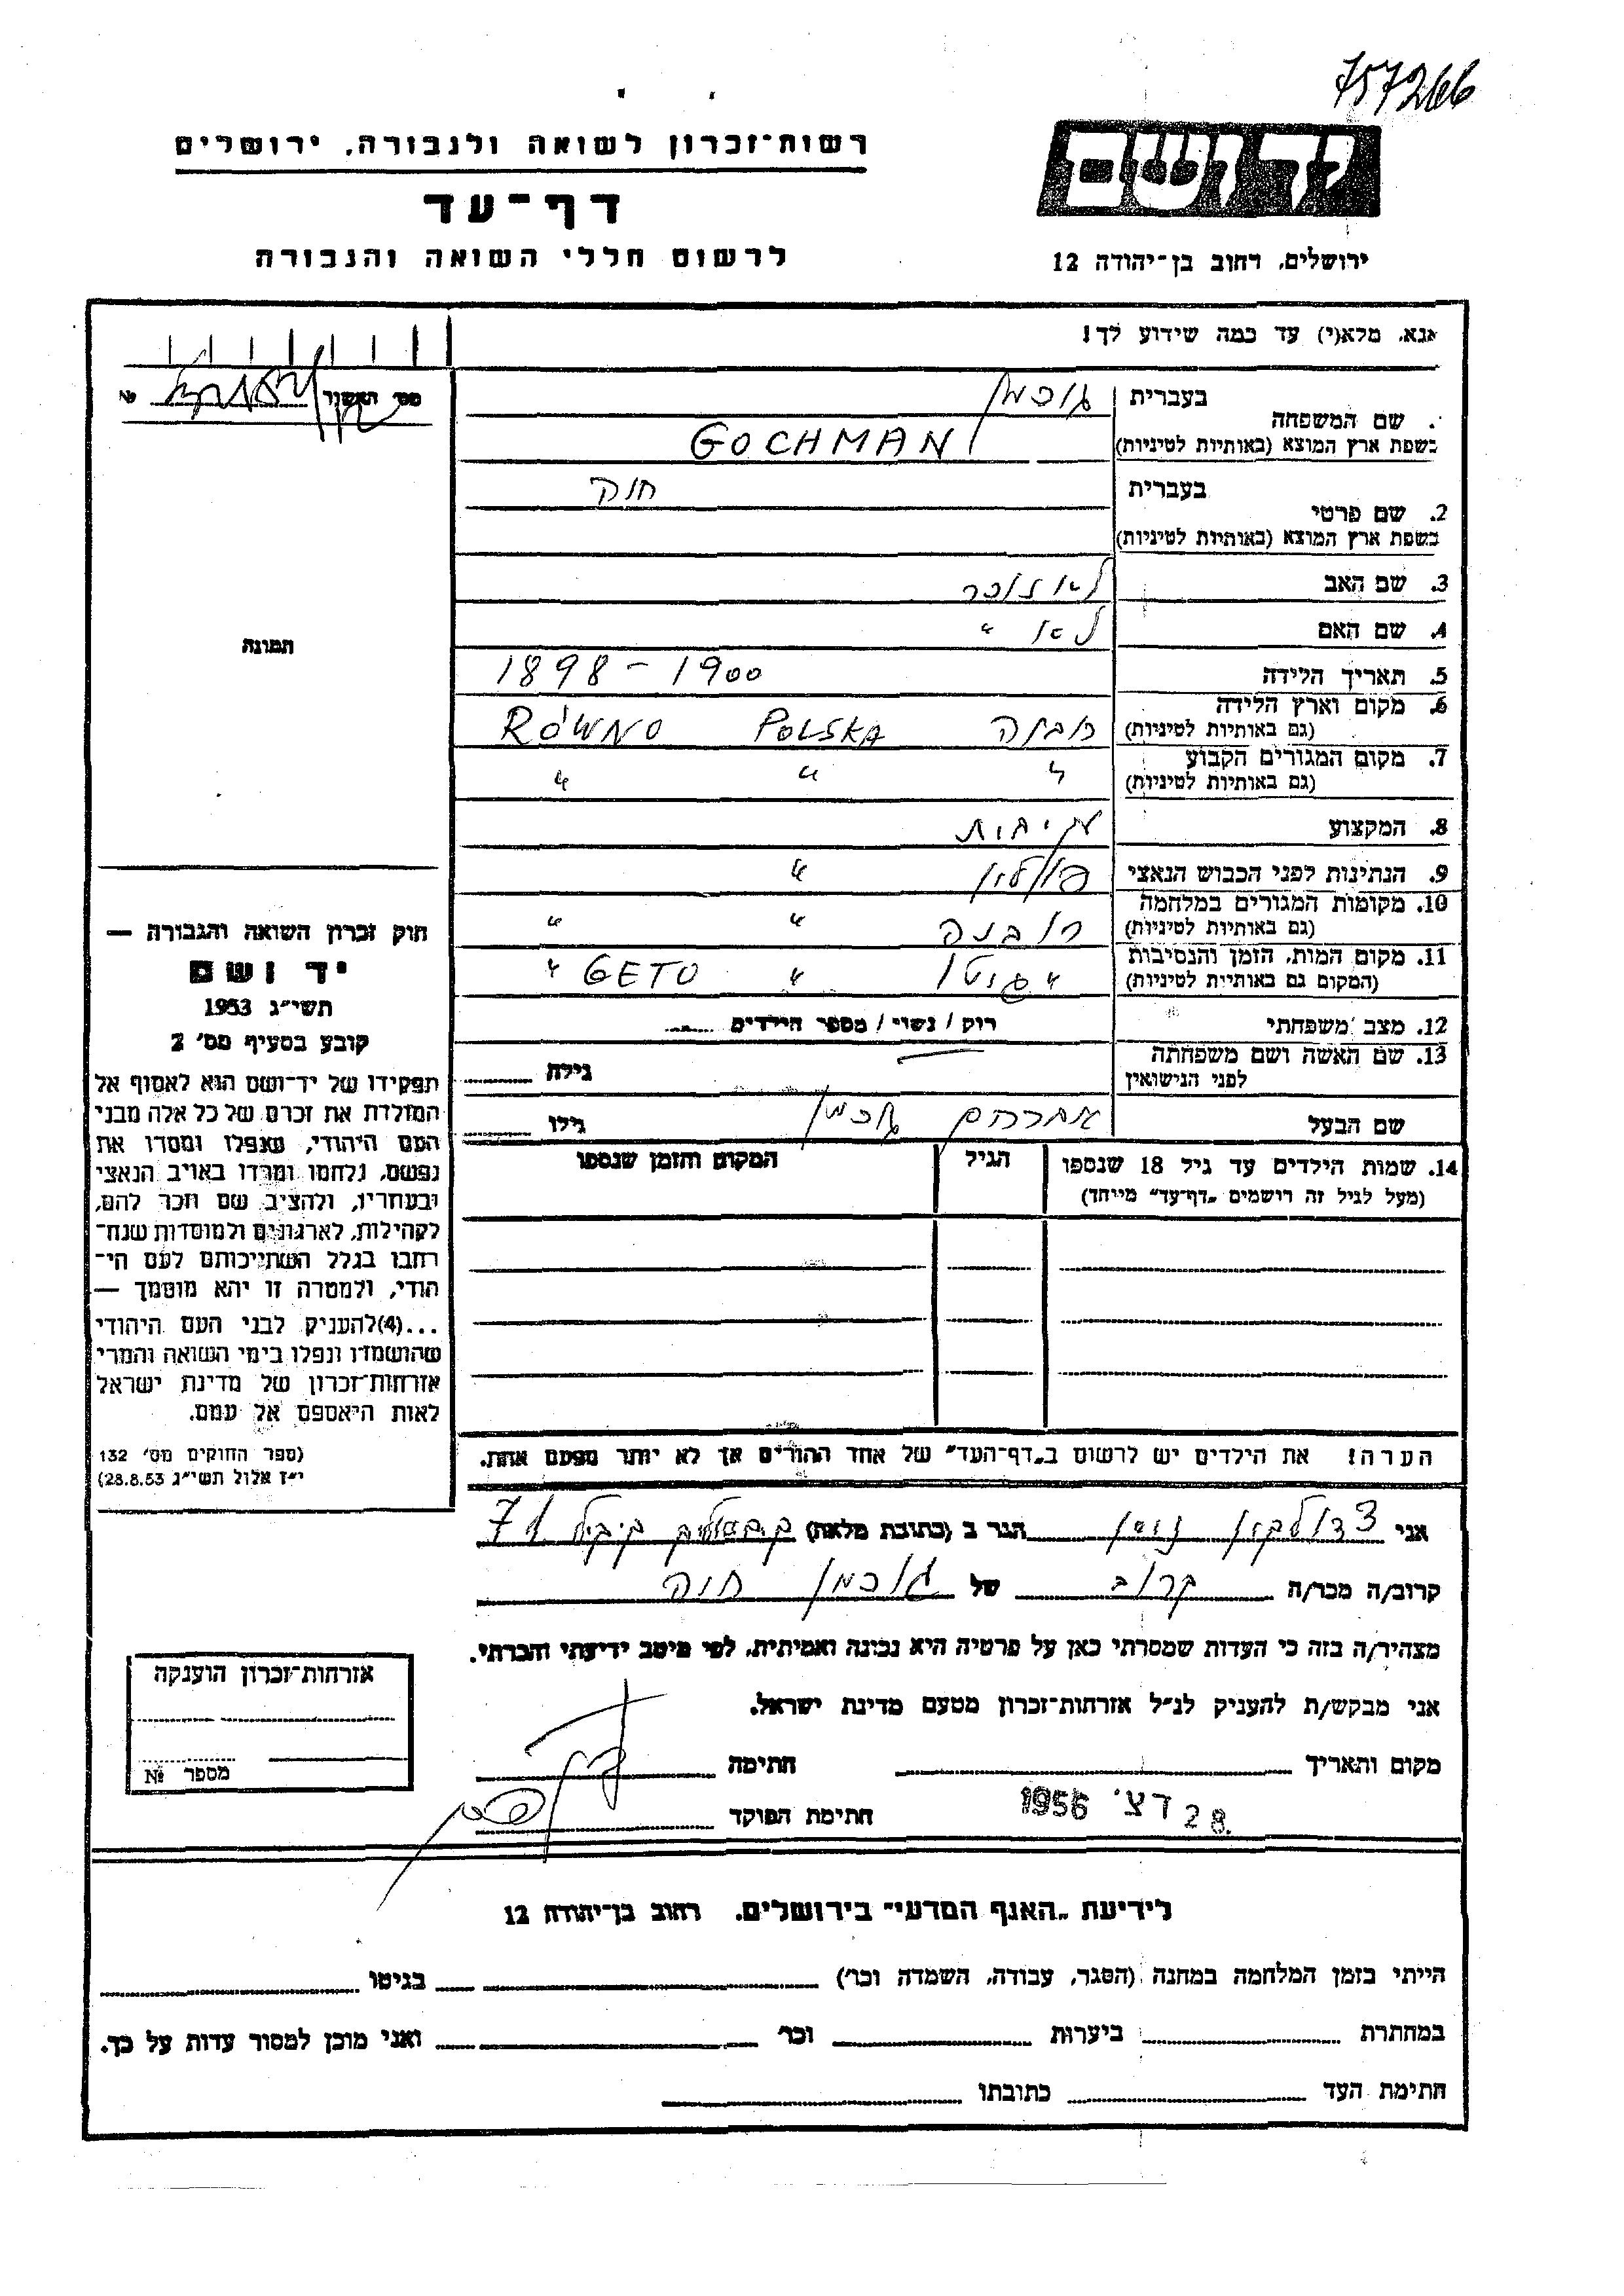 757266
רשות־זכרון לשואה ולגבורה, ירושלים
דף־עד
לרשום חללי השואה והגבורה
יד ושם
ירושלים, רחוב בן־יהודה 12
אנא, מלא(י) עד כמה שידוע לך!
מס׳ האשור №
תמונה
שם המשפחה
בעברית גוכמן
בשפת ארץ המוצא (באותיות לטיניות) GOCHMAN
2. שם פרטי
בעברית חוה
בשפת ארץ המוצא (באותיות לטיניות)
3. שם האב לא זוכר
4. שם האם לא "
5. תאריך הלידה 1898 - 1900
6. מקום וארץ הלידה (גם באותיות לטיניות) רובנה POLSKA RÓWNO
7. מקום המגורים הקבוע (גם באותיות לטיניות) " " "
8. המקצוע
9. הנתינות לפני הכבוש הנאצי פולין "
10. מקומות המגורים במלחמה (גם באותיות לטיניות) רובנה " "
11. מקום המות, הזמן והנסיבות (המקום גם באותיות לטיניות) " גיטו " GETO "
12. מצב משפחתי רוק / נשוי / מספר הילדים
13. שם האשה ושם משפחתה לפני הנישואין גילה
שם הבעל אברהם גוכמן גילו
14. שמות הילדים עד גיל 18 שנספו (מעל לגיל זה רושמים „דף־עד” מייחד) הגיל המקום והזמן שנספו
הערה! את הילדים יש לרשום ב„דף־העד” של אחד ההורים אך לא יותר מפעם אחת.
חוק זכרון השואה והגבורה —
יד ושם
תשי״ג 1953
קובע בסעיף מס׳ 2
תפקידו של יד־ושם הוא לאסוף אל
המולדת את זכרם של כל אלה מבני
העם היהודי, שנפלו ומסרו את
נפשם, נלחמו ומרדו באויב הנאצי
ובעוזריו, ולהציב שם וזכר להם,
לקהילות, לארגונים ולמוסדות שנח־
רבו בגלל השתייכותם לעם הי־
הודי, ולמטרה זו יהא מוסמך —
...(4)להעניק לבני העם היהודי
שהושמדו ונפלו בימי השואה והמרי
אזרחות־זכרון של מדינת ישראל
לאות היאספם אל עמם.
(ספר החוקים מס׳ 132
י״ז אלול תשי״ג 28.8.53)
אני הגר ב (כתובת מלאה) 71
קרוב/ה מכר/ה קרוב של גוכמן חוה
מצהיר/ה בזה כי העדות שמסרתי כאן על פרטיה היא נכונה ואמיתית, לפי מיטב ידיעתי והכרתי.
אני מבקש/ת להעניק לנ״ל אזרחות־זכרון מטעם מדינת ישראל.
מקום ותאריך חתימה
28. דצ׳ 1956 חתימת הפוקד
אזרחות־זכרון הוענקה
מספר №
לידיעת „האגף המדעי” בירושלים, רחוב בן־יהודה 12
הייתי בזמן המלחמה במחנה (הסגר, עבודה, השמדה וכר׳) בגיטו
במחתרת ביערות וכר׳ ואני מוכן למסור עדות על כך.
חתימת העד כתובתו